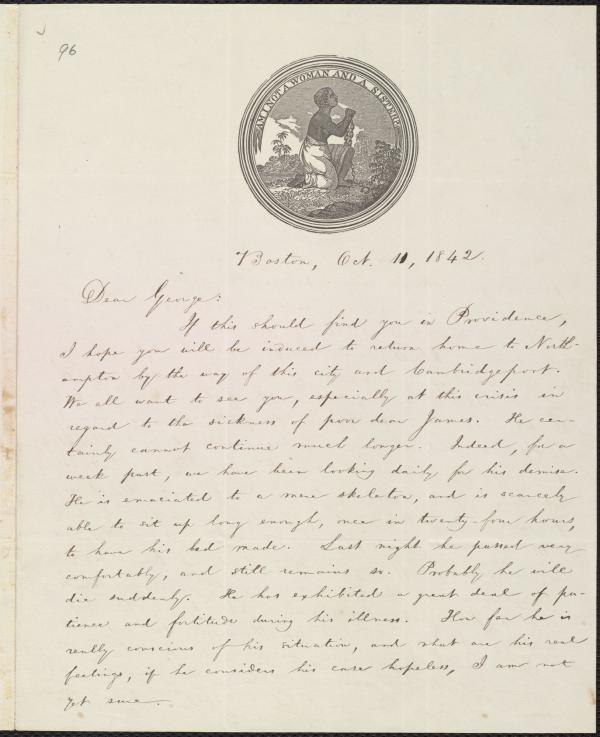 96
AM I NOT A WOMAN AND A SISTER?
Boston, Oct. 11, 1842.
Dear George:
If this should find you in Providence,
I hope you will be induced to return home to North-
ampton by the way of this city and Cambridgeport.
We all want to see you, especially at this crisis in
regard to the sickness of poor dear James. He cer-
tainly cannot continue much longer. Indeed, for a
week past, we have been looking daily for his demise.
He is emaciated to a mere skeleton, and is scarcely
able to sit up long enough, once in twenty-four hours,
to have his bed made. Last night he passed very
comfortably, and still remains so. Probably he will
die suddenly. He has exhibited a great deal of pa-
tience and fortitude during his illness. How far he is
really conscious of his situation, and what are his real
feelings, if he considers his case hopeless, I am not
yet sure.